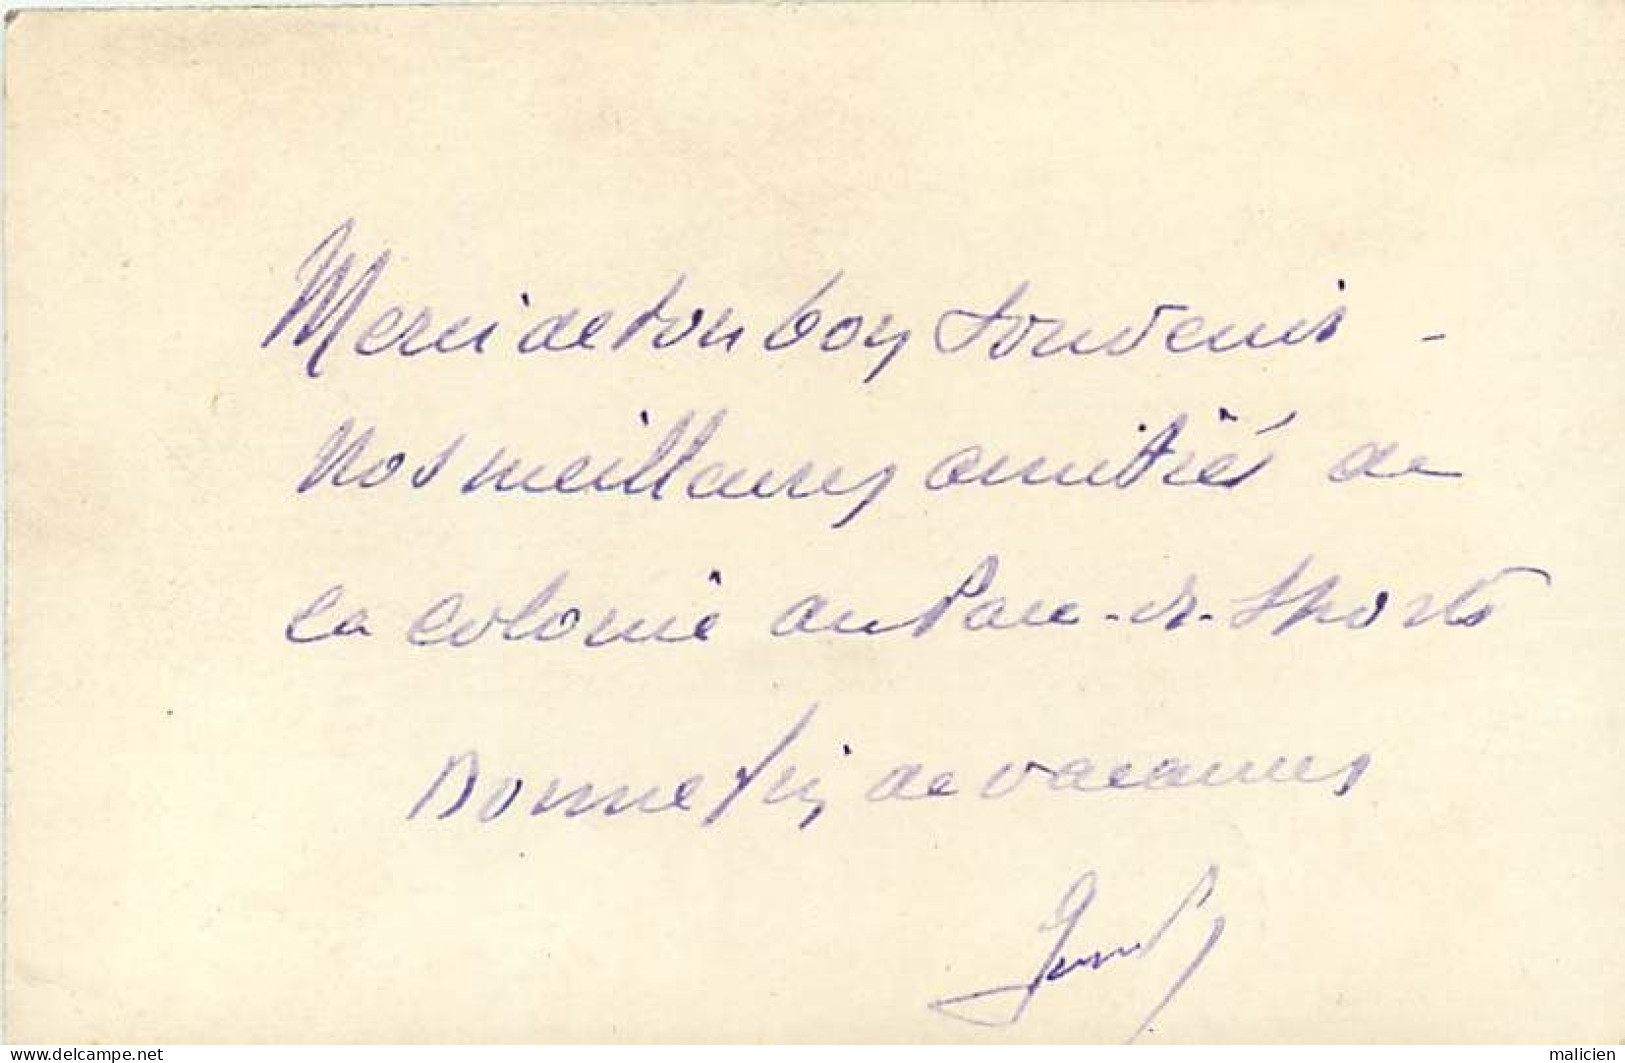 Merci de ton bon souvenir -
Nos meilleures amitiés de
la colonie au Parc-des-Sports
Bonne fin de vacances
www.delcampe.net
malicien